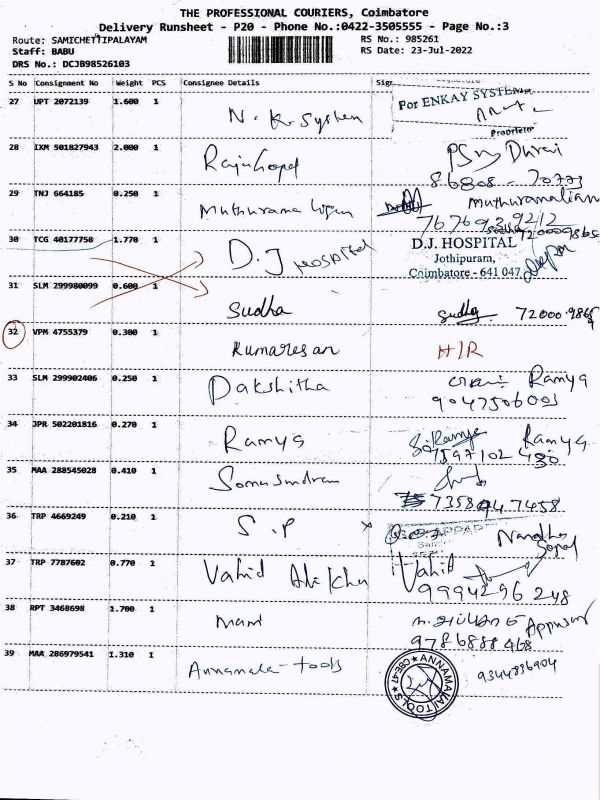 THE PROFESSIONAL COURIERS, Coimbatore
Delivery Runsheet - P20 - Phone No.:0422-3505555 - Page No.:3
Route: SAMICHETTIPALAYAM RS No.: 985261
Staff: BABU RS Date: 23-Jul-2022
DRS No.: DCJB98526103
S No Consignment No Weight PCS Consignee Details
27 UPT 2072139 1.600 1 N. K. System For ENKAY SYSTEM
Proprietor
28 IXM 501827943 2.000 1 Rajuhopal Durai
86808 - 70773
29 TNJ 664185 0.250 1 Muthurama Muthuramalian
7676939212
30 TCG 40177750 1.770 1 D.J Hospital D.J. HOSPITAL
Jothipuram,
Coimbatore - 641 047
31 SLM 299980099 0.600 1 Sudha Sudha 72000
32 VPM 4755379 0.300 1 Kumaresan H/R
33 SLM 299902406 0.250 1 Dakshitha Ramya
9047506003
34 JPR 502201816 0.270 1 Ramya Ramya
7597102
35 MAA 288545028 0.410 1 Somusundram
7358947458
36 TRP 4669249 0.210 1 S.P Nandha
Gopal
37 TRP 7787602 0.770 1 Vahid Vahid
9994296248
38 RPT 3468698 1.700 1 Mani
9786888468
39 MAA 286979541 1.310 1 Annamalai-tools ANNAMALAI TOOLS CBE-47
9344836904